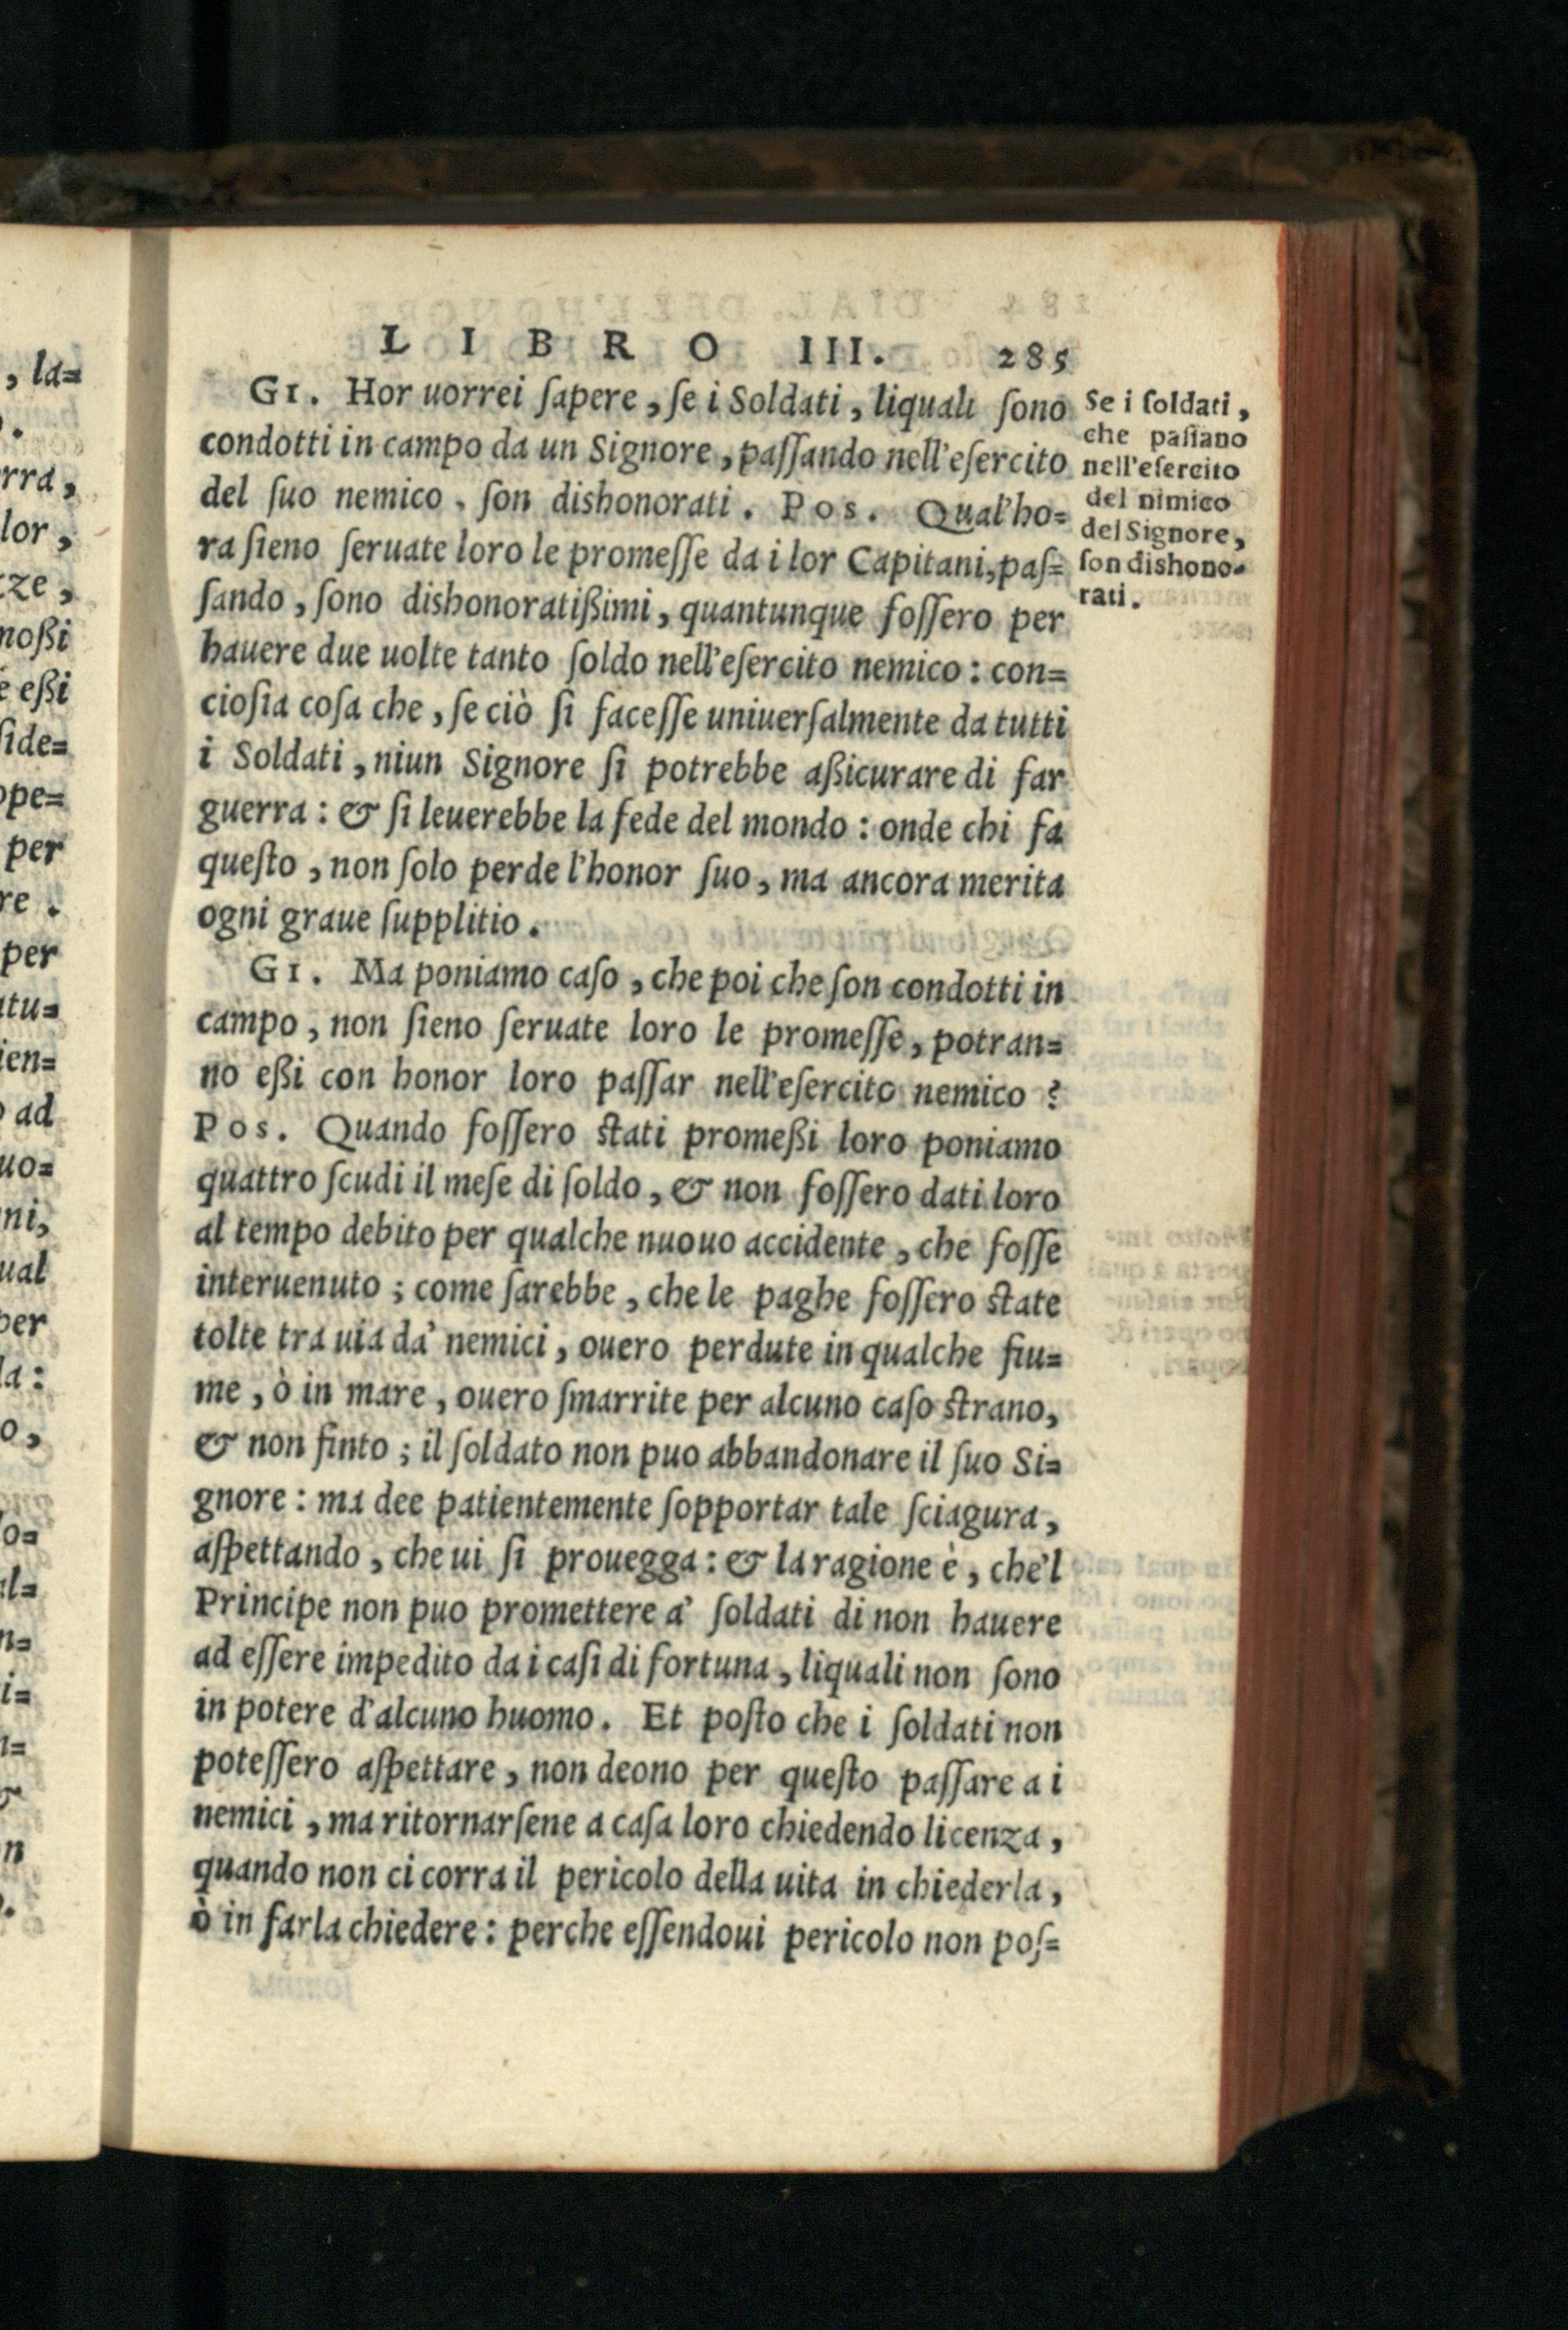 LIBRO III. 285
GI. Hor uorrei ſapere, ſe i Soldati, liquali ſono
condotti in campo da un Signore, paſſando nell'eſercito
del ſuo nemico, ſon dishonorati. Pos. Qual'ho=
ra ſieno ſeruate loro le promeſſe da i lor Capitani, paſ=
ſando, ſono dishonoratißimi, quantunque foſſero per
hauere due uolte tanto ſoldo nell'eſercito nemico: con=
cioſia coſa che, ſe ciò ſi faceſſe uniuerſalmente da tutti
i Soldati, niun Signore ſi potrebbe aßicurare di far
guerra: & ſi leuerebbe la fede del mondo: onde chi fa
queſto, non ſolo perde l'honor ſuo, ma ancora merita
ogni graue ſupplitio.
GI. Ma poniamo caſo, che poi che ſon condotti in
campo, non ſieno ſeruate loro le promeſſe, potran=
no eßi con honor loro paſſar nell'eſercito nemico?
Pos. Quando foſſero ſtati promeßi loro poniamo
quattro ſcudi il meſe di ſoldo, & non foſſero dati loro
al tempo debito per qualche nuouo accidente, che foſſe
interuenuto; come ſarebbe, che le paghe foſſero ſtate
tolte tra uia da' nemici, ouero perdute in qualche fiu=
me, ò in mare, ouero ſmarrite per alcuno caſo ſtrano,
& non finto; il ſoldato non puo abbandonare il ſuo Si=
gnore: ma dee patientemente ſopportar tale ſciagura,
aſpettando, che ui ſi prouegga: & la ragione è, che'l
Principe non puo promettere a' ſoldati di non hauere
ad eſſere impedito da i caſi di fortuna, liquali non ſono
in potere d'alcuno huomo. Et poſto che i ſoldati non
poteſſero aſpettare, non deono per queſto paſſare a i
nemici, ma ritornarſene a caſa loro chiedendo licenza,
quando non ci corra il pericolo della uita in chiederla,
ò in farla chiedere: perche eſſendoui pericolo non poſ=
Se i ſoldati,
che paſſano
nell'eſercito
del nimico
del Signore,
ſon dishono-
rati.
, la=
rra,
lor,
zze,
noßi
è eßi
ſide=
ope=
per
re.
per
atu=
ien=
o ad
uo=
ni,
ual
per
la:
o,
lo=
al=
n=
i=
n